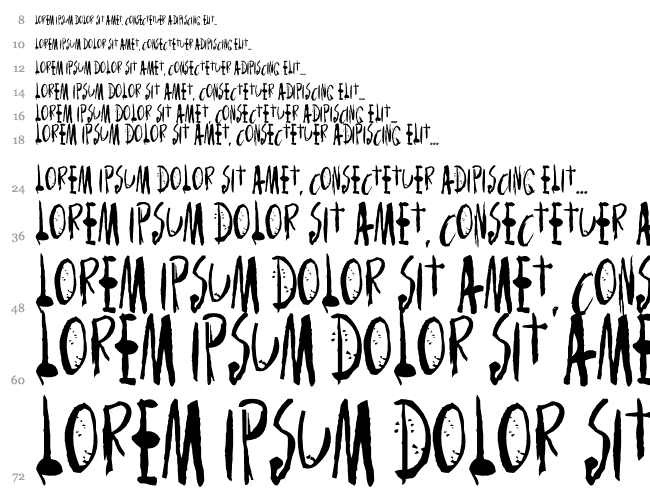 8 LOREM IPSUM DOLOR SIT AMET, CONSECTETUER ADIPISCING ELIT...
10 LOREM IPSUM DOLOR SIT AMET, CONSECTETUER ADIPISCING ELIT...
12 LOREM IPSUM DOLOR SIT AMET, CONSECTETUER ADIPISCING ELIT...
14 LOREM IPSUM DOLOR SIT AMET, CONSECTETUER ADIPISCING ELIT...
16 LOREM IPSUM DOLOR SIT AMET, CONSECTETUER ADIPISCING ELIT...
18 LOREM IPSUM DOLOR SIT AMET, CONSECTETUER ADIPISCING ELIT...
24 LOREM IPSUM DOLOR SIT AMET, CONSECTETUER ADIPISCING ELIT...
36 LOREM IPSUM DOLOR SIT AMET, CONSECTETUER A
48 LOREM IPSUM DOLOR SIT AMET, CONS
60 LOREM IPSUM DOLOR SIT AME
72 LOREM IPSUM DOLOR SIT